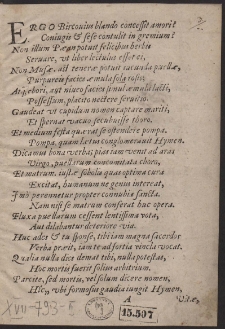 ERGO Bircouius blando concessit amori?
Coniugis & sese contulit in gremium?
Non illum Pæan potuit felicibus herbis
Seruare, vt liber ictibus esset ei,
Non Musæ, nil tenerae potuit iucunda puellæ,
Purpureis facies æmula rosis,
At gebori, aut niueo facies simul æmula lacti,
Possessum placito nectere seruitio.
Gaudeat vt cupidum nomen captare mariti,
Et spernat vacuo secubuisse thoro.
Et medium festa quærat se ostendere pompa.
Pompa, quam lætus conglomerauit Hymen.
Dicamus bona verba; pias tam venit ad aras
Virgo, puellarum concomitata choro,
Et matrum. iustæ sobolis quas optima cura
Excitat, humanum ne genus intereat,
Imo perennetur propter connubia sancta.
Nam nisi se matrem conferat huc opera.
Fluxa puellarum cessent lentissima vota,
Aut dilabantur deteriore via.
Huc ades & tu sponse, tibi iam magna sacerdos
Verba præit, iam te ad fortia vincla vocat.
Qualia nulla dies demat tibi, nulla potestas,
Hoc mortis fuerit solius arbitrium.
Parcite, sed mortis, vel solum dicere nomen,
Hic, vbi formosus gaudia iungit Hymen,
A Vitæ,
XVII-793-II
15.597